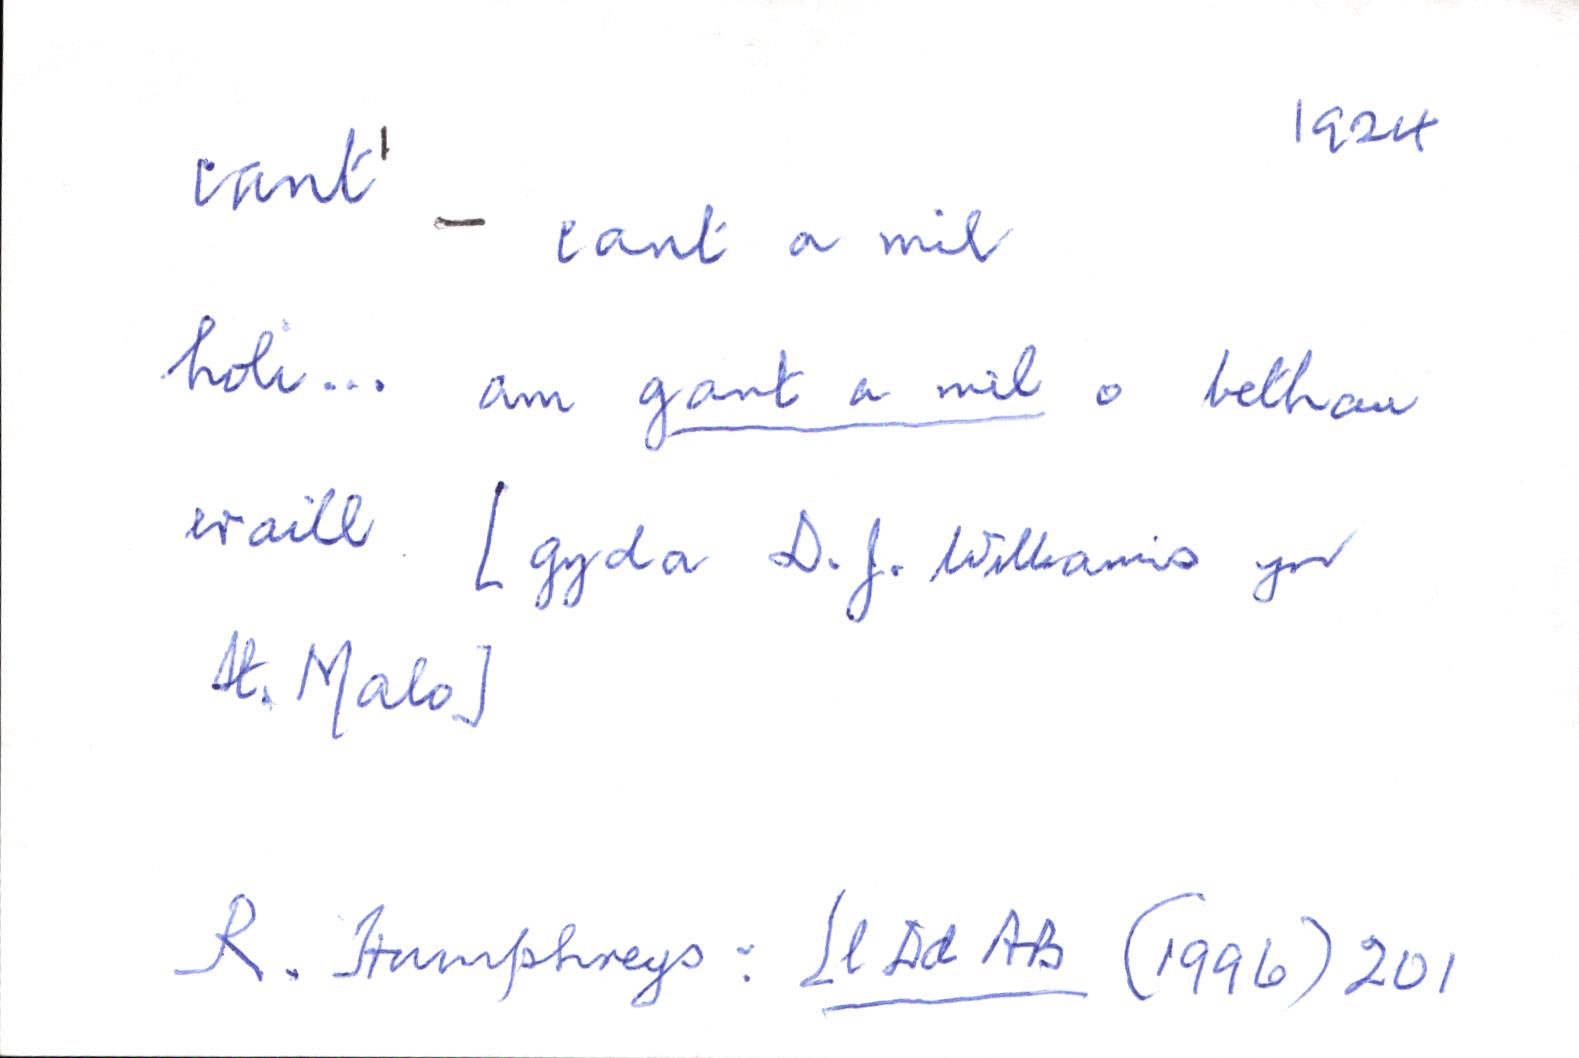 1924
cant¹ - cant a mil
holi... am gant a mil o bethau
eraill [gyda D.J. Williams yn
St. Malo]
R. Humphreys: Ll Dd AB (1996) 201